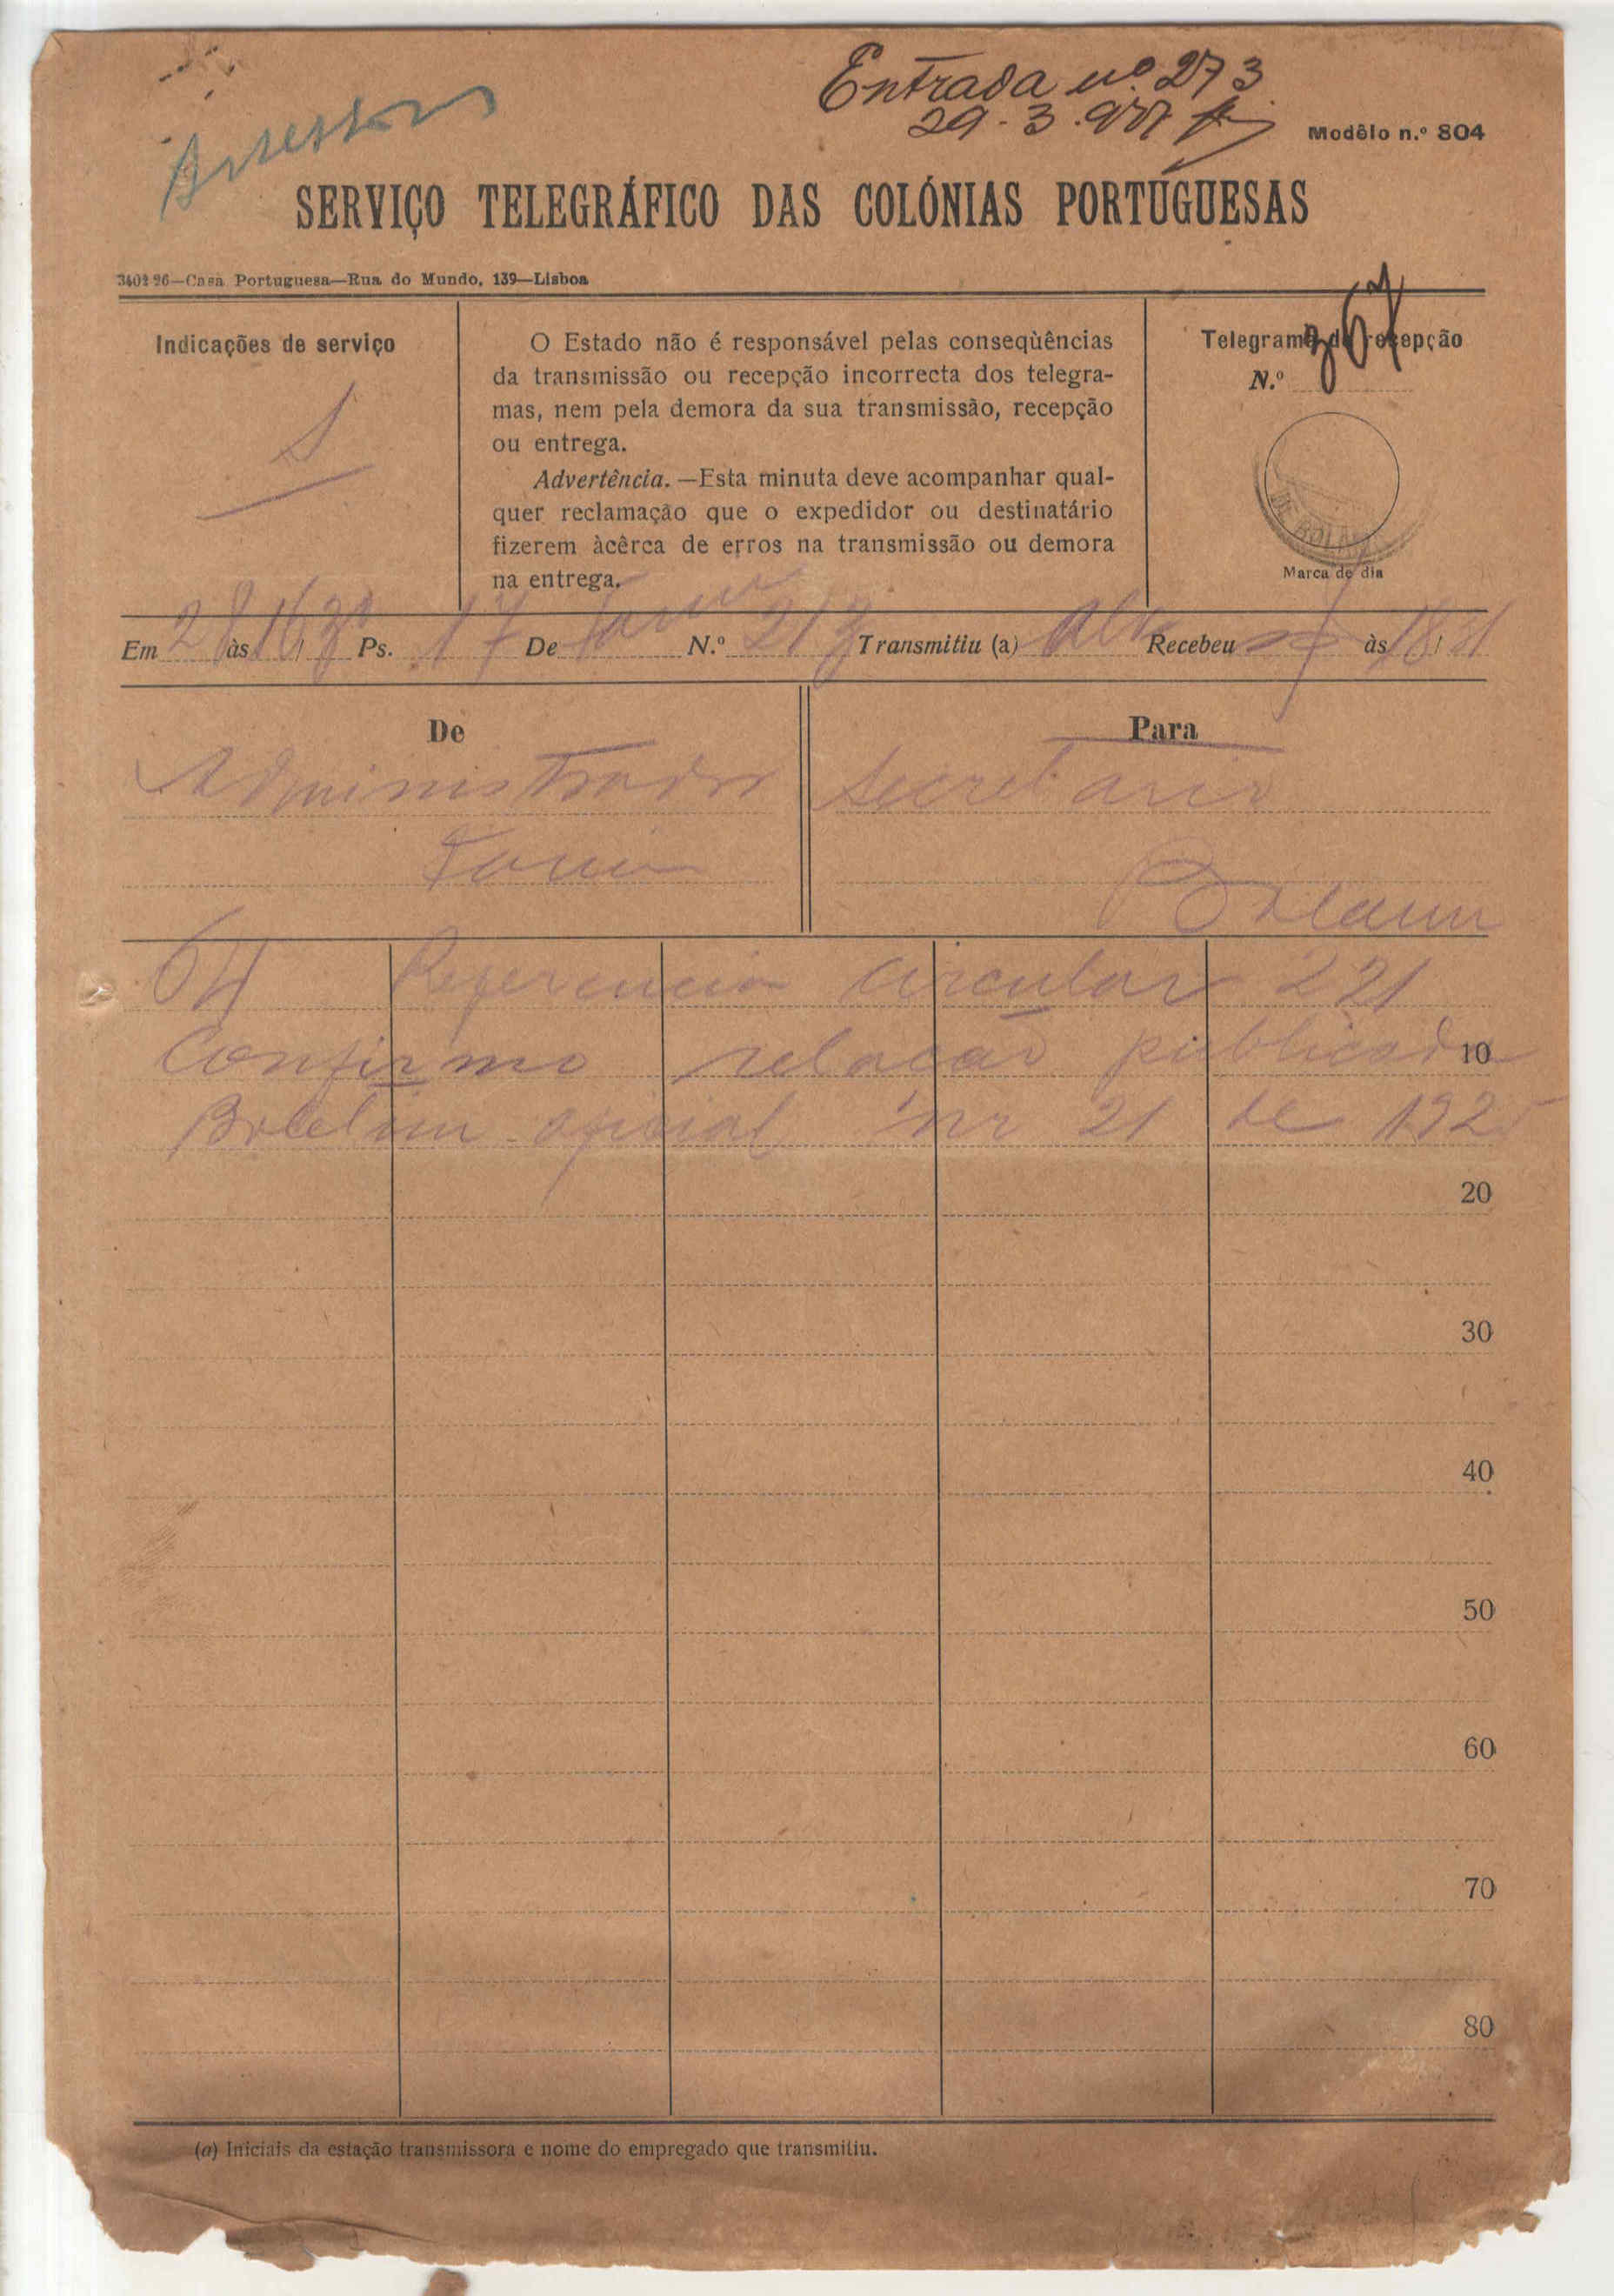 Entrada nº 273
29-3-927
Modêlo n.º 804
SERVIÇO TELEGRÁFICO DAS COLÓNIAS PORTUGUESAS
Casa Portuguesa—Rua do Mundo, 139—Lisboa
Indicações de serviço
S
O Estado não é responsável pelas conseqùências
da transmissão ou recepção incorrecta dos telegra-
mas, nem pela demora da sua transmissão, recepção
ou entrega.
Advertência.—Esta minuta deve acompanhar qual-
quer reclamação que o expedidor ou destinatário
fizerem àcêrca de erros na transmissão ou demora
na entrega.
Telegrama de recepção
N.º 367
BOLAMA
Marca de dia
Em 28 às 16/30 Ps. 17 De Farim N.º 213 Transmitiu (a) Recebeu às 18/
De
Administrador
Farim
Para
Secretario
Bolama
64 Referencia circular 221
Confirmo relacao publicada
10
Boletim oficial nr 21 de 1925
20
30
40
50
60
70
80
(a) Iniciais da estação transmissora e nome do empregado que transmitiu.